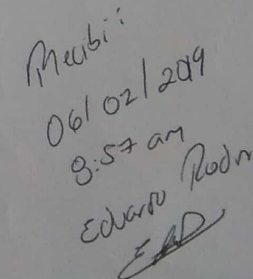 Recibi:
06/02/2019
8:57 am
Eduardo Rodr